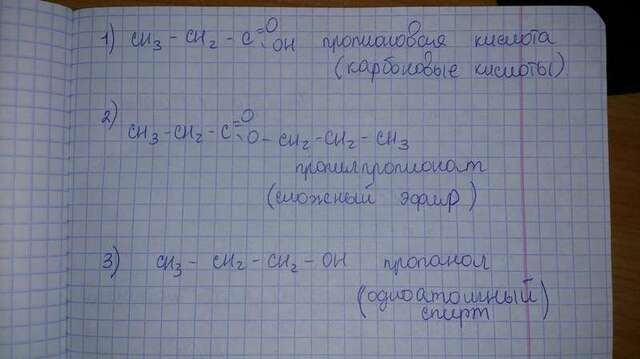 1) CH3 - CH2 - C =O -OH пропионовая кислота
(карбоновые кислоты)
2) CH3 - CH2 - C =O -O - CH2 - CH2 - CH3
пропилпропионат
(сложный эфир)
3) CH3 - CH2 - CH2 - OH пропанол
(одноатомный
спирт)